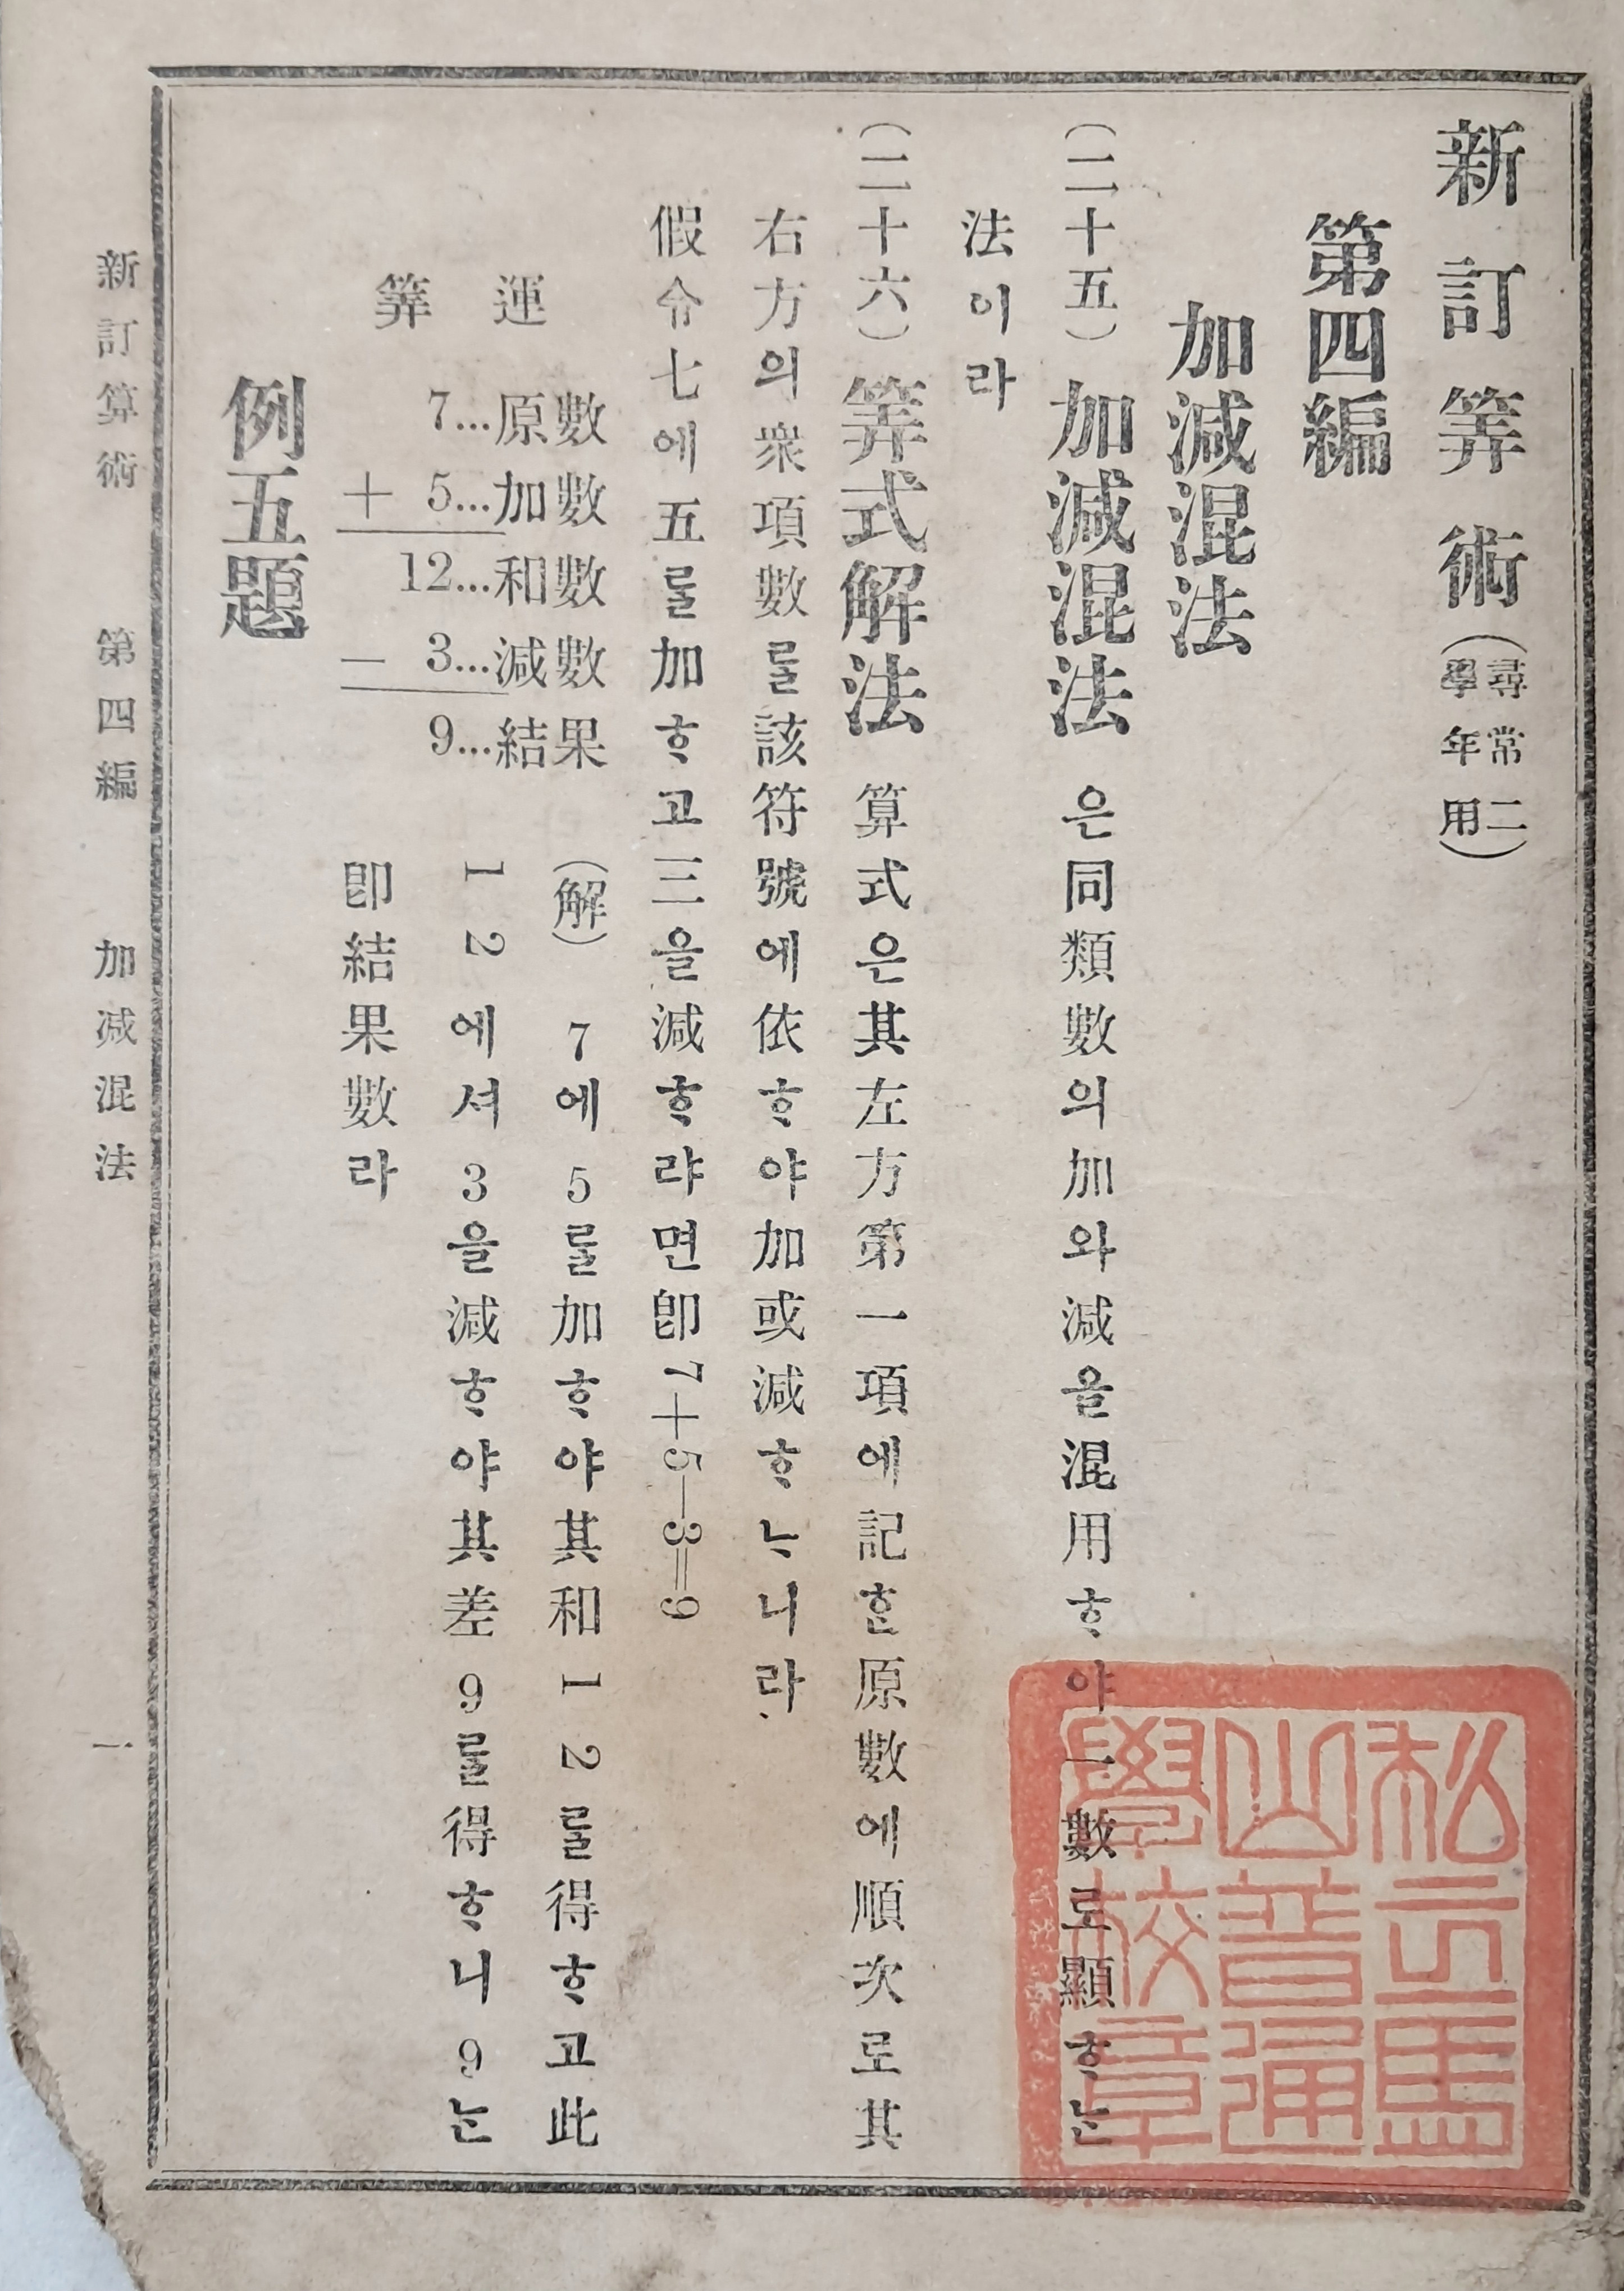 新訂筭術(尋常二學年用)
第四編
加減混法
(二十五)加減混法은同類數의加와減을混用ᄒᆞ야一數로顯ᄒᆞᄂᆞᆫ
法이라
(二十六)筭式解法 算式은其左方第一項에記ᄒᆞᆫ原數에順次로其
右方의衆項數ᄅᆞᆯ該符號에依ᄒᆞ야加或減ᄒᆞᄂᆞ니라
假令七에五ᄅᆞᆯ加ᄒᆞ고三을減ᄒᆞ랴면卽7+5-3=9
運筭
7…原數
+ 5…加數
12…和數
- 3…減數
9…結果
(解) 7에5ᄅᆞᆯ加ᄒᆞ야其和12ᄅᆞᆯ得ᄒᆞ고此
12에셔3을減ᄒᆞ야其差9ᄅᆞᆯ得ᄒᆞ니9ᄂᆞᆫ
卽結果數라
例五題
新訂算術 第四編 加减混法 一
松山
普通
學校
章